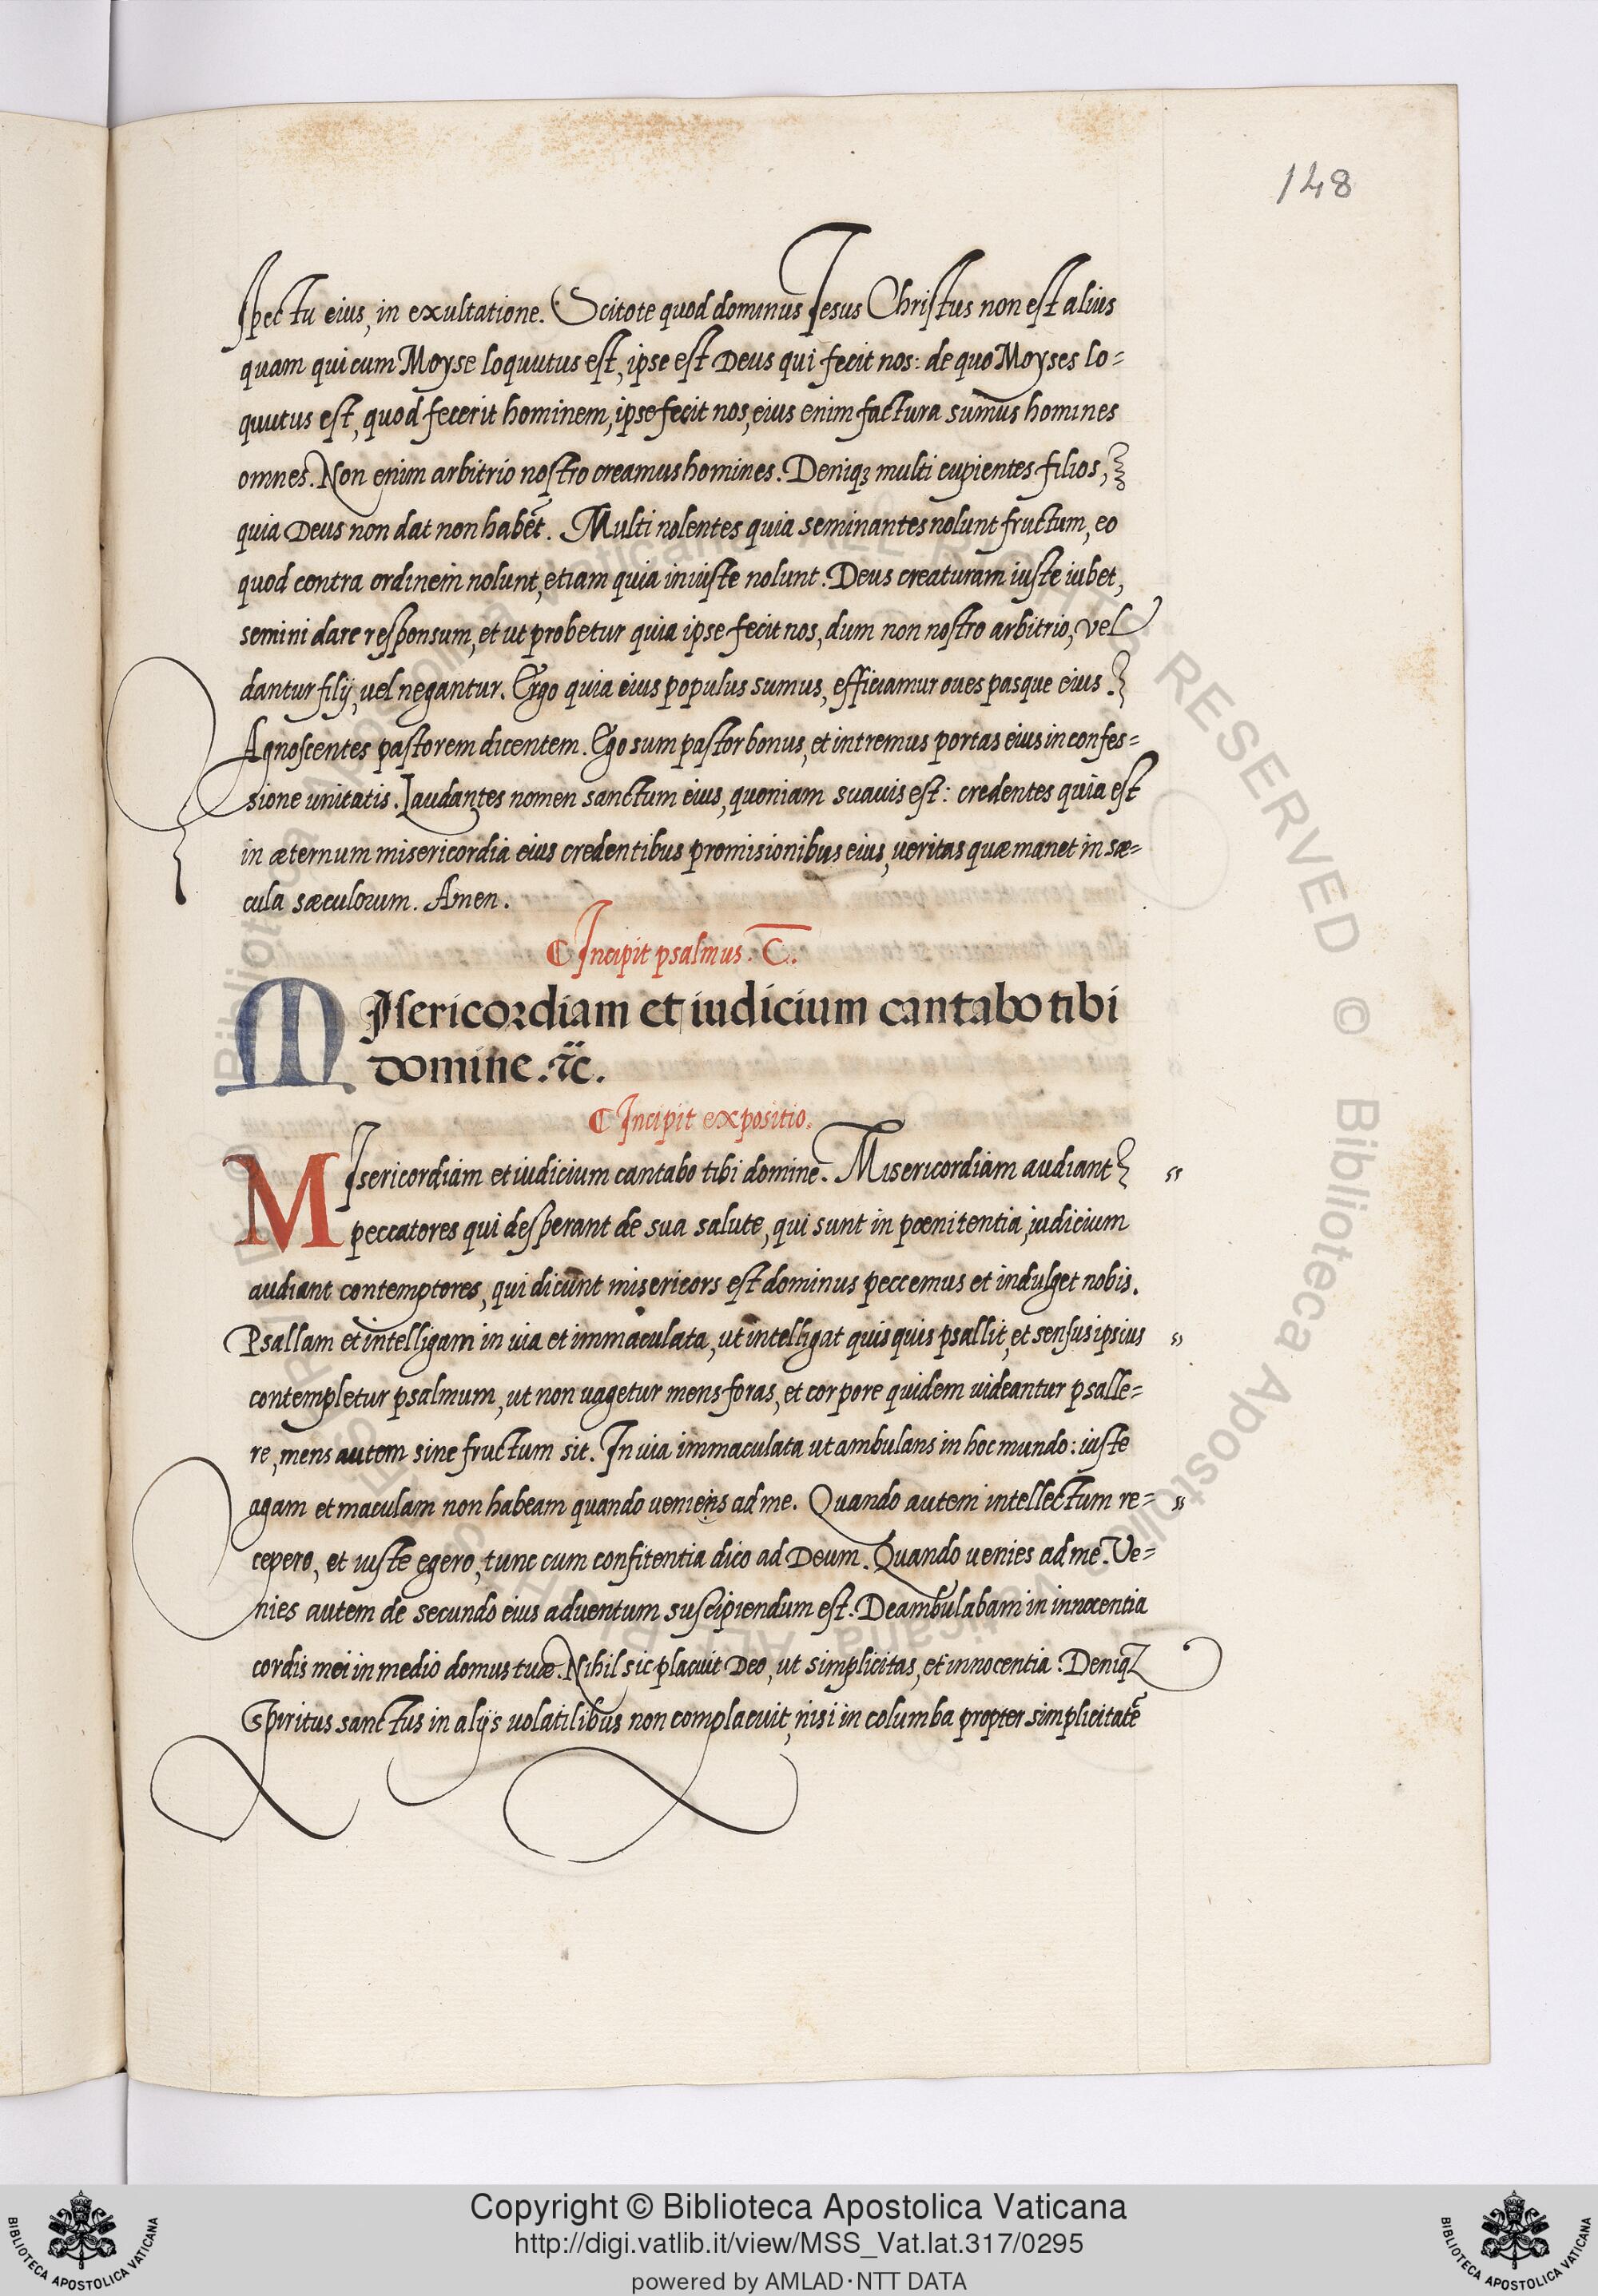 148
spectu eius, in exultatione. Scitote quod dominus Jesus Christus non est alius
quam qui cum Moyse loquutus est, ipse est Deus qui fecit nos: de quo Moyses lo=
quutus est, quod fecerit hominem, ipse fecit nos, eius enim factura sumus homines
omnes. Non enim arbitrio nostro creamus homines. Deniqꝫ multi cupientes filios,
quia Deus non dat non habēt. Multi nolentes quia seminantes nolunt fructum, eo
quod contra ordinem nolunt, etiam quia iniuste nolunt. Deus creaturam iuste iubet,
semini dare responsum, et ut probetur quia ipse fecit nos, dum non nostro arbitrio, vel
dantur filij, uel negantur. Ergo quia eius populus sumus, efficiamur oues pasque eius.
Agnoscentes pastorem dicentem. Ego sum pastor bonus, et intremus portas eius in confes=
sione unitatis. Laudantes nomen sanctum eius, quoniam suauis est: credentes quia est
in æternum misericordia eius credentibus promisionibus eius, ueritas quæ manet in sæ=
cula sæculorum. Amen.
¶ Incipit psalmus. C̅.
MIsericordiam et iudicium cantabo tibi
domine. ⁊c̈.
¶ Incipit expositio.
MIsericordiam et iudicium cantabo tibi domine. Misericordiam audiant "
peccatores qui desperant de sua salute, qui sunt in pœnitentia, iudicium
audiant contemptores, qui dicunt misericors est dominus peccemus et indulget nobis.
Psallam et intelligam in uia et immaculata, ut intelligat quis quis psallit, et sensus ipsius "
contempletur psalmum, ut non uagetur mens foras, et corpore quidem uideantur psalle=
re, mens autem sine fructum sit. In uia immaculata ut ambulans in hoc mundo: iuste
agam et maculam non habeam quando ueniens ad me. Quando autem intellectum re= "
cepero, et iuste egero, tunc cum confitentia dico ad Deum. Quando uenies ad me. Ve=
nies autem de secundo eius aduentum suscipiendum est. Deambulabam in innocentia
cordis mei in medio domus tuæ. Nihil sic placuit Deo, ut simplicitas, et innocentia. Deniqꝫ
Spiritus sanctus in alijs uolatilibus non complacuit, nisi in columba propter simplicitatē
Copyright © Biblioteca Apostolica Vaticana
http://digi.vatlib.it/view/MSS_Vat.lat.317/0295
powered by AMLAD·NTT DATA
BIBLIOTECA APOSTOLICA VATICANA
BIBLIOTECA APOSTOLICA VATICANA